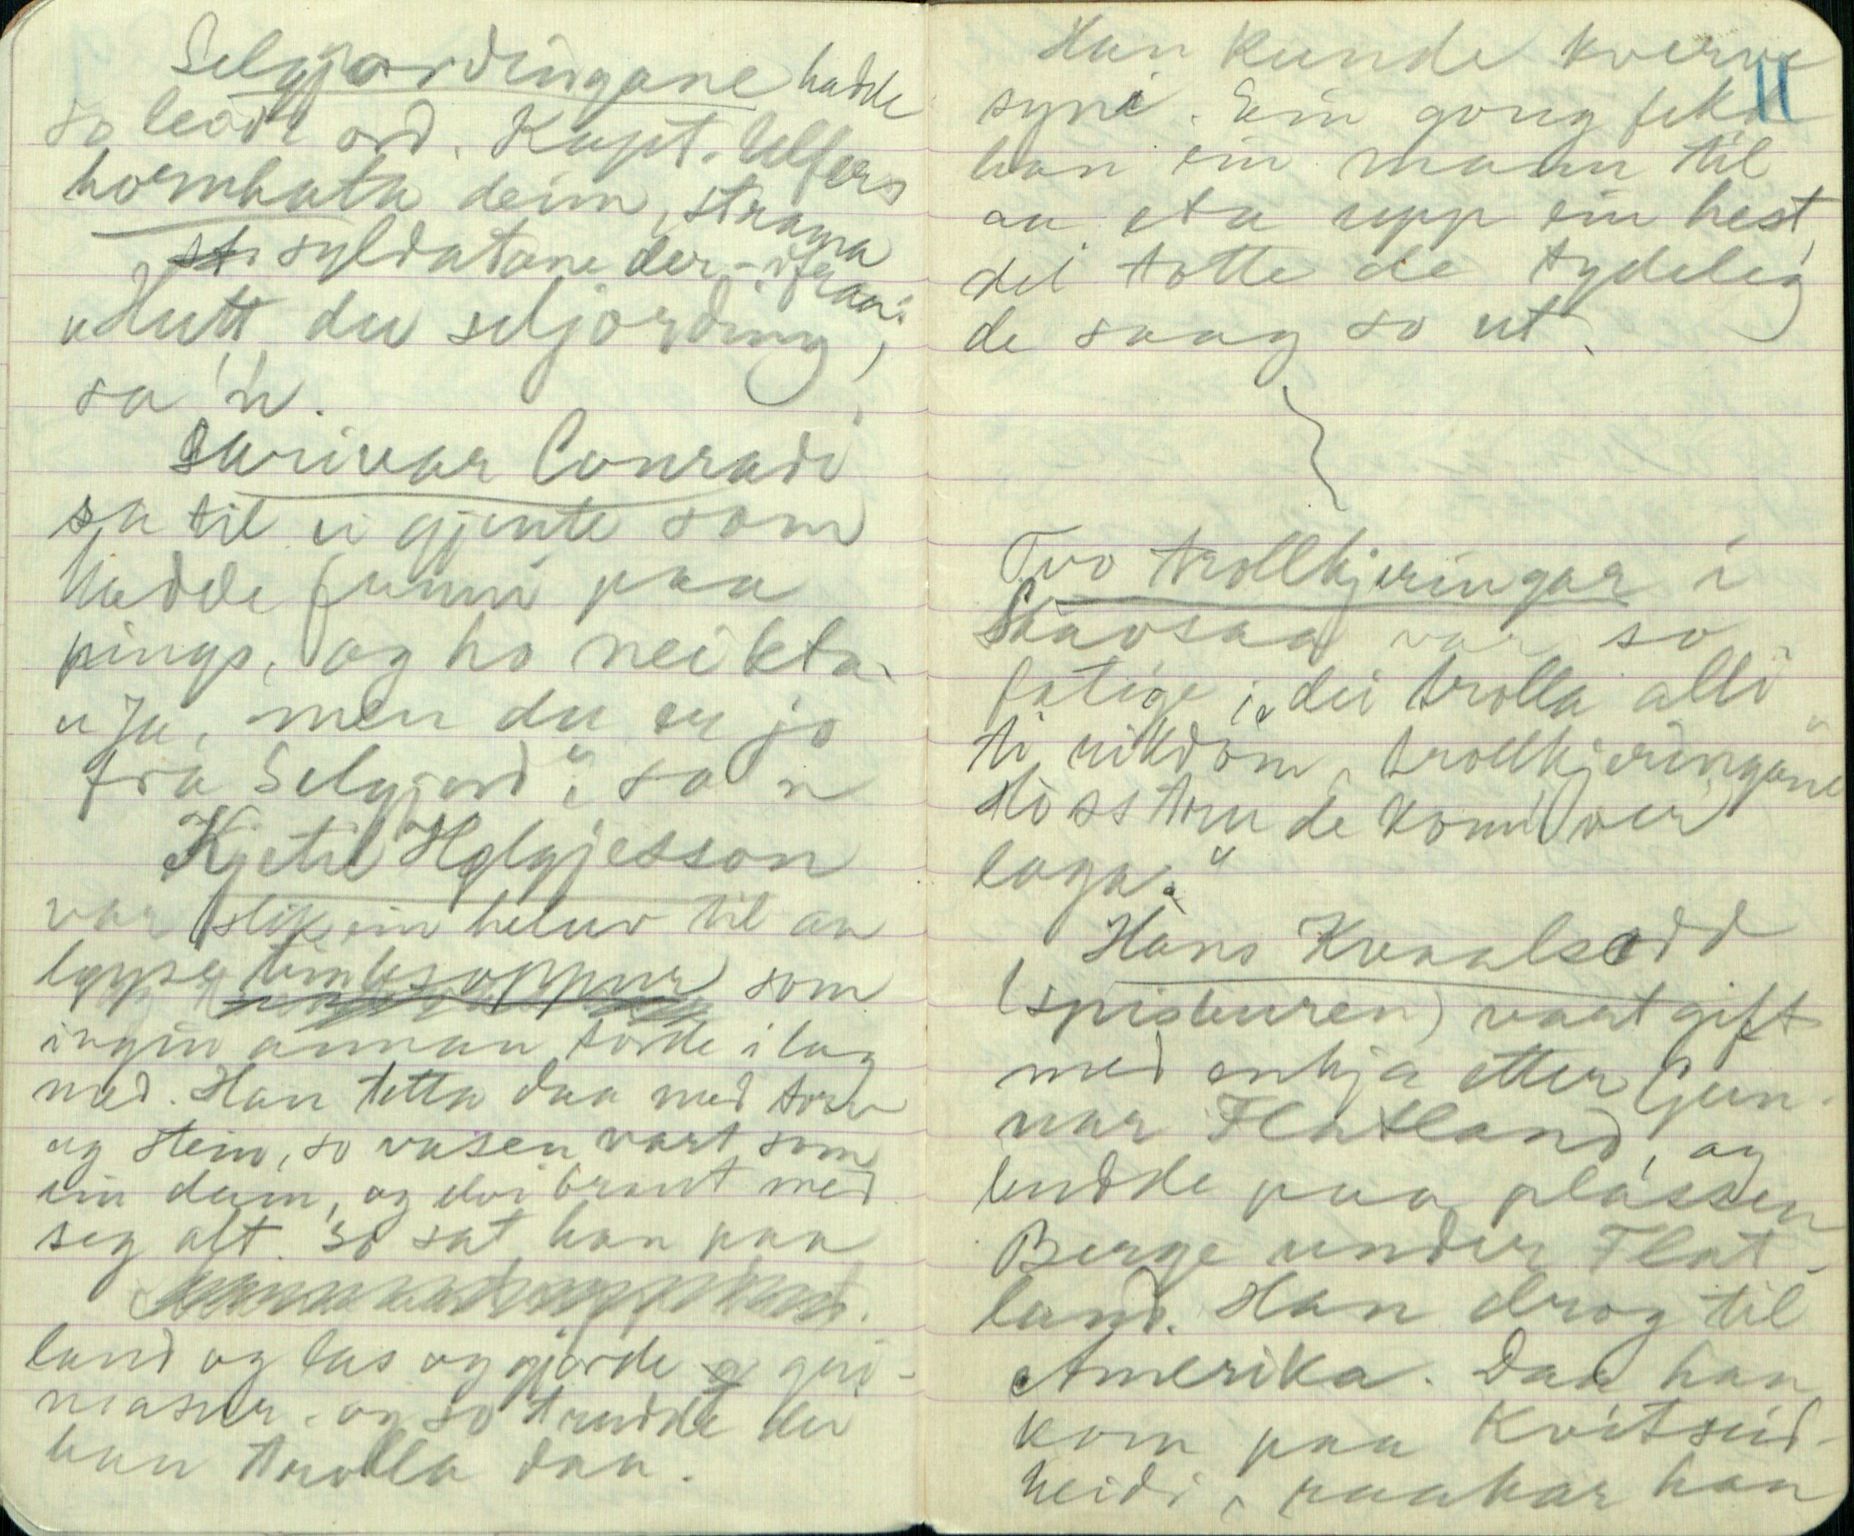 Selgjordingane hadde
so leidt ord. Kapt. Ulfers
hormhata deim, strama
syldatane der-ifraa:
"Hutt du seljording",
sa 'n.
Skrivar Conradi
sa til ei gjente som
hadde funni paa
pings, og ho neikta.
"Ja, men du er jo
fra Selgjord", sa 'n
Kjetil Helgjesson
var slik ein heluv til aa
løyse timbesoppur som
ingin annan torde i lag
med. Han tetta daa med torv
og stein, so vasen vart som
ein dam, og dei braut med
seg alt. So sat han paa
land og las og gjorde gri-
masur. og so trudde dei
han trolla daa.
Han kunde kverve
syni. Ein gong fekk
han ein mann til
aa eta upp ein hest,
det totte de tydeleg
de saag so ut.
11
Tvo trollkjeringar i
Skavsaa var so
fatige; "dei trolla alli
ti rikdom, trollkjeringane
de kom
laga."
Hans Kvaalsodd
(spisburen) vart gift
med enkja etter Gun-
nar Flatland, og
budde paa plassen
Berge under Flat-
land. Han drog til
Amerika. Daa han
kom paa Kvitseid-
heidi, raakar han